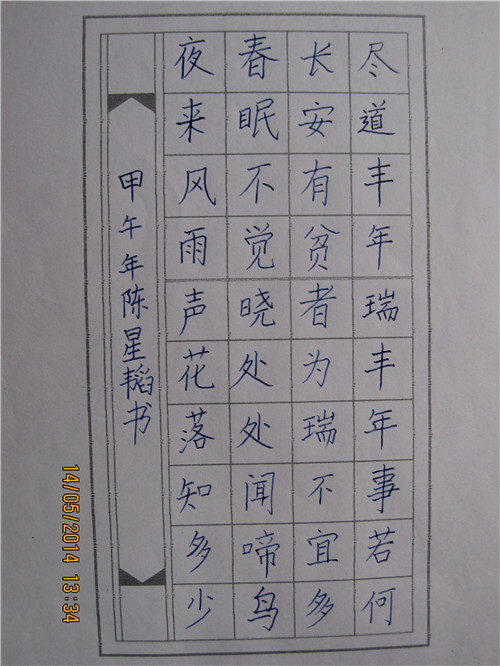 尽道丰年瑞丰年事若何
长安有贫者为瑞不宜多
春眠不觉晓处处闻啼鸟
夜来风雨声花落知多少
甲午年陈星韬书
14/05/2014 13:34